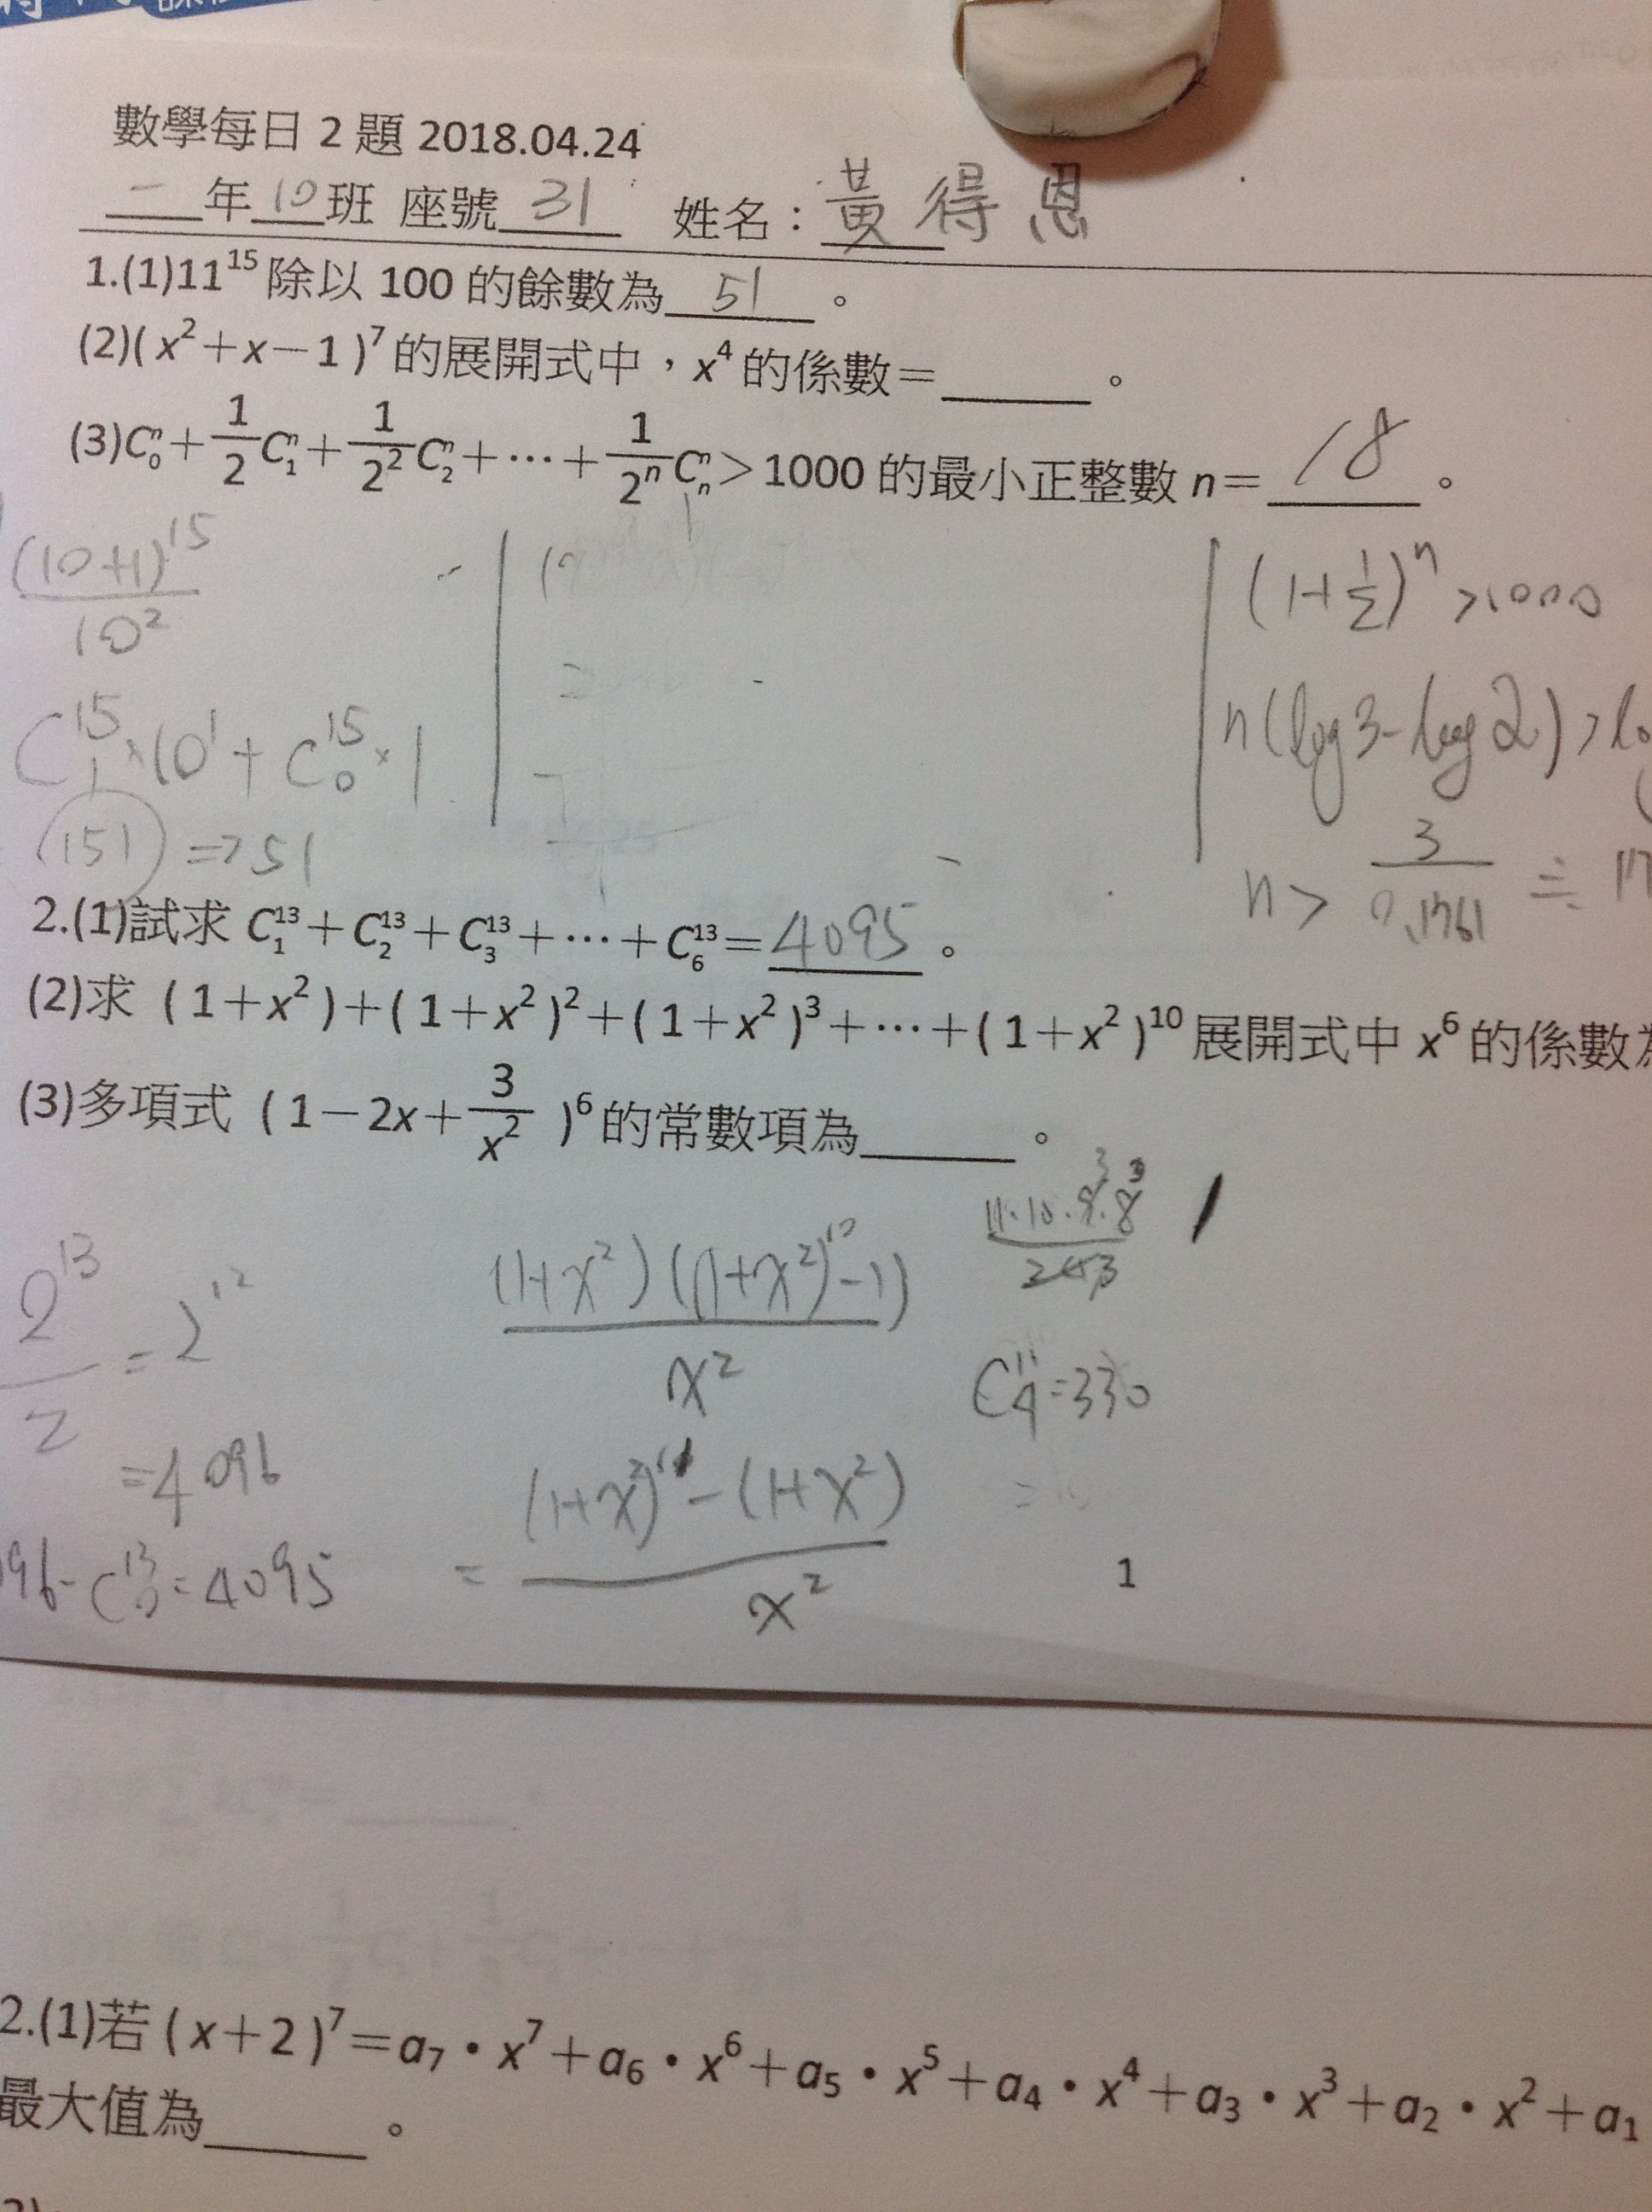 數學每日 2 題 2018.04.24
一年10班 座號31 姓名：黃得恩
1.(1)11^15 除以 100 的餘數為 51 。
(2)( x^2＋x－1 )^7 的展開式中，x^4 的係數＝______。
(3)C^n_0＋1/2 C^n_1＋1/2^2 C^n_2＋⋯＋1/2^n C^n_n＞1000 的最小正整數 n＝18。
(10+1)^15 / 10^2
C^15_1×10^1+C^15_0×1
(151) => 51
(1+1/2)^n >1000
n(log3-log2)>
n> 3/0.1761 ≒ 17
2.(1)試求 C^13_1＋C^13_2＋C^13_3＋⋯＋C^13_6＝4095。
(2)求 ( 1＋x^2 )＋( 1＋x^2 )^2＋( 1＋x^2 )^3＋⋯＋( 1＋x^2 )^10 展開式中 x^6 的係數
(3)多項式 ( 1－2x＋3/x^2 )^6 的常數項為______。
2^13/2 = 2^12
=4096
96-C^13_0=4095
(1+x^2)((1+x^2)^10-1) / x^2
= (1+x^2)^11-(1+x^2) / x^2
C^11_4=330
1
2.(1)若 ( x＋2 )^7＝a_7・x^7＋a_6・x^6＋a_5・x^5＋a_4・x^4＋a_3・x^3＋a_2・x^2＋a_1
最大值為______。